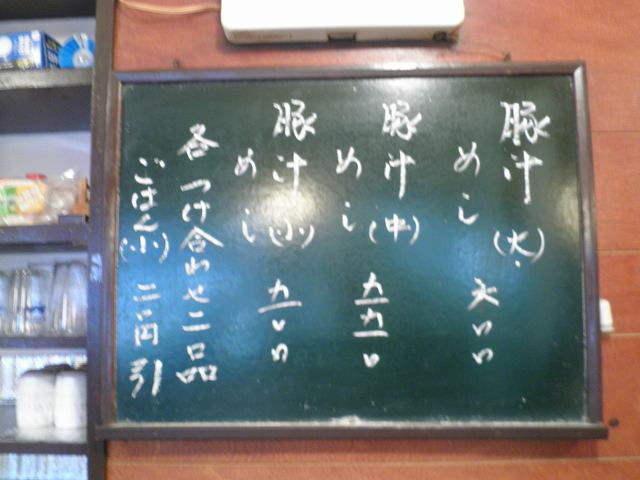 豚汁(大)
めし
豚汁(中)
めし 九九〇
豚汁(小)
めし 九〇〇
各 つけ合わせ二品
ごはん(小) 二〇円引